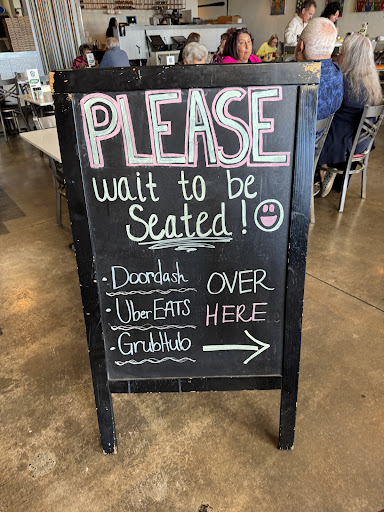 PLEASE
wait to be
Seated!
· Doordash
· UberEATS
· GrubHub
OVER
HERE